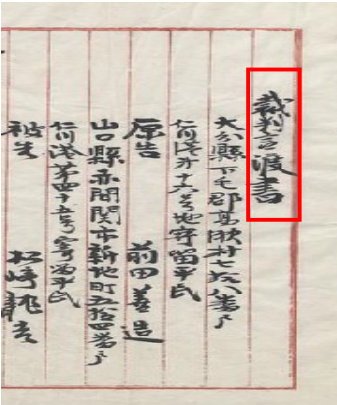 裁判言渡書
大分縣下毛郡萬販村七六八番戸
仁川港第十六号地寄留平民
原告 前田善造
山口縣赤間関市新地町五拾四番戸
仁川港第四十五号寄留平民
被告 松崎龍吉